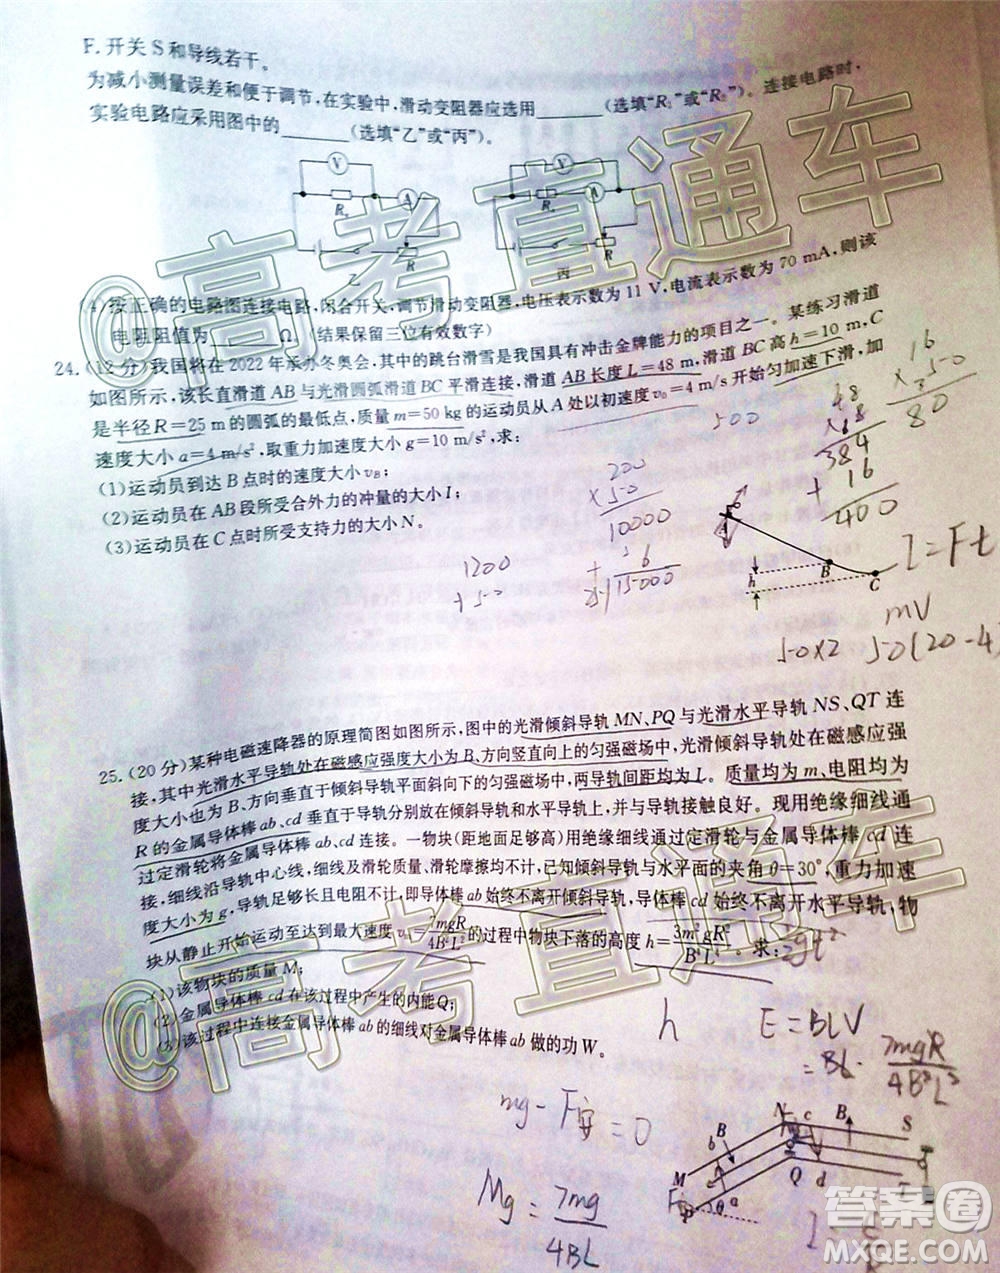 F. 开关 S 和导线若干。
为减小测量误差和便于调节,在实验中,滑动变阻器应选用______(选填“R₁”或“R₂”)。连接电路时,
实验电路应采用图中的______(选填“乙”或“丙”)。
V
A
Rₓ
R
乙
V
A
Rₓ
R
丙
(4)按正确的电路图连接电路,闭合开关,调节滑动变阻器,电压表示数为 11 V,电流表示数为 70 mA,则该
电阻阻值为______Ω。(结果保留三位有效数字)
24.(12 分)我国将在 2022 年承办冬奥会,其中的跳台滑雪是我国具有冲击金牌能力的项目之一。某练习滑道
如图所示,该长直滑道 AB 与光滑圆弧滑道 BC 平滑连接,滑道 AB 长度 L=48 m,滑道 BC 高 h=10 m,C
是半径 R=25 m 的圆弧的最低点,质量 m=50 kg 的运动员从 A 处以初速度 v₀=4 m/s 开始匀加速下滑,加
速度大小 a=4 m/s²,取重力加速度大小 g=10 m/s²,求:
(1)运动员到达 B 点时的速度大小 v_B;
(2)运动员在 AB 段所受合外力的冲量的大小 I;
(3)运动员在 C 点时所受支持力的大小 N。
16
×50
80
48
×8
384
+16
400
500
200
×50
10000
15000
1200
+50
h
B
C
I=Ft
mV
50×2 50(20-4)
25.(20 分)某种电磁速降器的原理简图如图所示,图中的光滑倾斜导轨 MN、PQ 与光滑水平导轨 NS、QT 连
接,其中光滑水平导轨处在磁感应强度大小为 B、方向竖直向上的匀强磁场中,光滑倾斜导轨处在磁感应强
度大小也为 B、方向垂直于导轨平面斜向下的匀强磁场中,两导轨间距均为 L。质量均为 m、电阻均为
R 的金属导体棒 ab、cd 垂直于导轨分别放在倾斜导轨和水平导轨上,并与导轨接触良好。现用绝缘细线通
过定滑轮将金属导体棒 ab、cd 连接。一物块(距地面足够高)用绝缘细线通过定滑轮与金属导体棒 cd 连
接,细线沿导轨中心线,细线及滑轮质量、滑轮摩擦均不计,已知倾斜导轨与水平面的夹角 θ=30°,重力加速
度大小为 g,导轨足够长且电阻不计,即导体棒 ab 始终不离开倾斜导轨,导体棒 cd 始终不离开水平导轨,物
块从静止开始运动至达到最大速度 v₁=7mgR/4B²L² 的过程中物块下落的高度 h=3m²gR²/B⁴L⁴。求:
(1)该物块的质量 M;
(2)金属导体棒 cd 在该过程中产生的内能 Q;
(3)该过程中连接金属导体棒 ab 的细线对金属导体棒 ab 做的功 W。
h
E=BLV
=BL·7mgR/4B²L²
mg-F安=0
Mg=7mg/4BL
N
c
B
S
B
b
M
Q
d
T
a
θ
P
@高考直通车
@高考直通车
答案圈
MXQE.COM